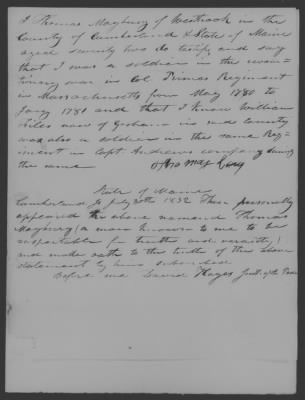 I Thomas Mayberry of Westbrook in the
County of Cumberland & State of Maine
aged seventy two do testify and say
that I was a soldier in the revolu-
tionary war in Col Primes Regiment
in Massachusetts from May 1780 to
Jany 1781 and that I know William
Files now of Gorham in said county
was also a soldier in the same Reg-
iment in Capt Andrews company during
the same
State of Maine
Cumberland Ss July 20th 1832 Then personally
appeared the above named Thomas
Mayberry (a man known to me to be
respectable for truth and veracity)
and made oath to the truth of the above
statement by him subscribed
Before me David Hayes Just. of the Peace